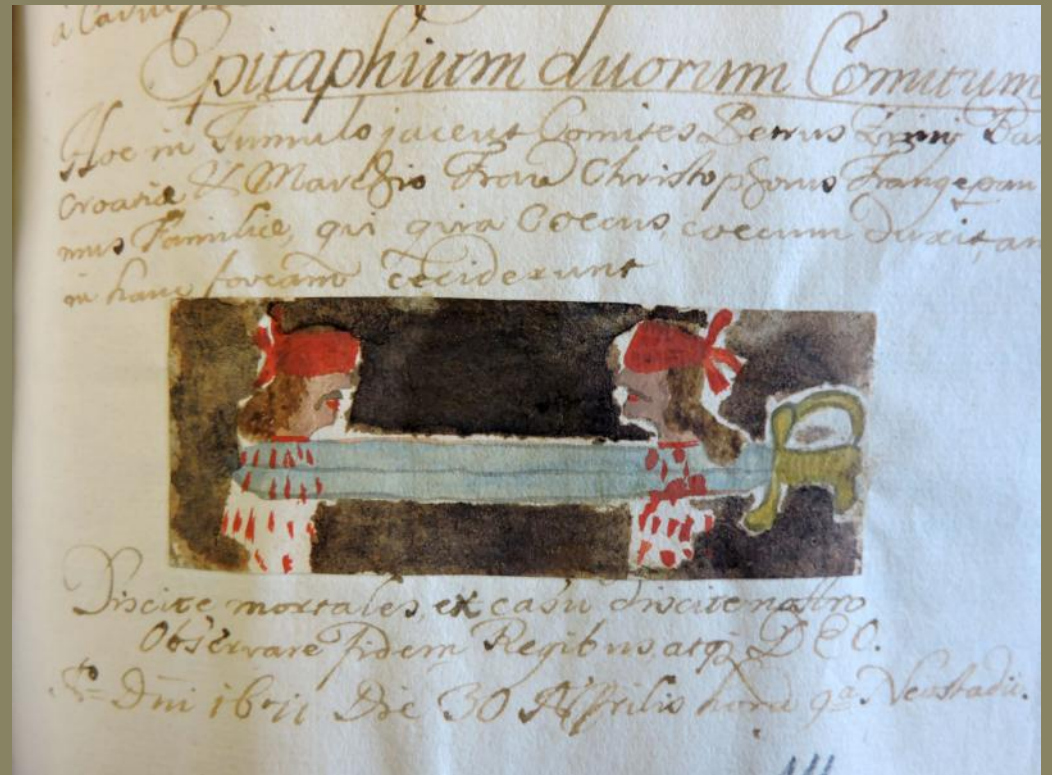 a Cadu
Epitaphium duorum Comitum
Hoc in Tumulo jacent Comites Petrus Zriny Ban
Croatiæ & Marchio Franc Christophorus Frangepan
mus Familiæ, qui quia Coecus, coecum duxit, am
in hanc foveam ceciderunt
Discite mortales, ex casu discite nostro
Observare fidem Regibus, atq DEO.
Ao Dni 1671 Die 30 Aprilis hora 9a Neostadii.